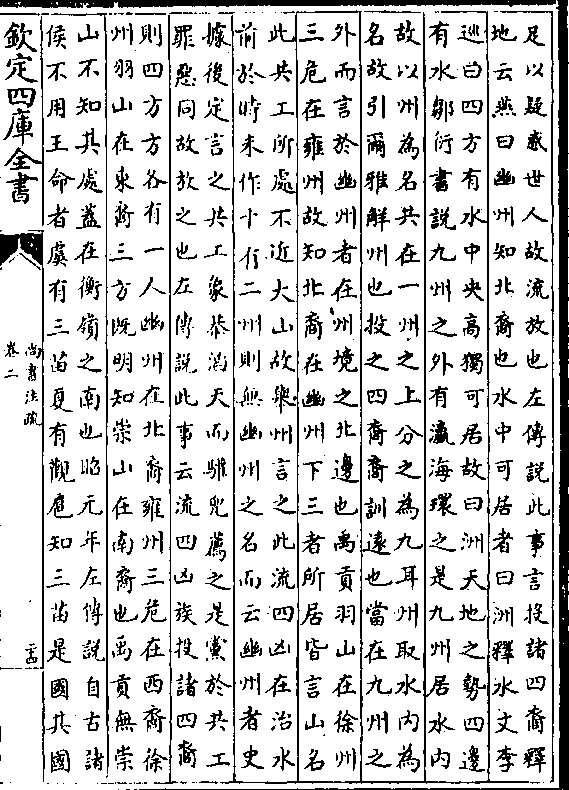 足以疑惑世人故流放也左傳說此事言投諸四裔釋
地云燕曰幽州知北裔也水中可居者曰洲釋水文李
巡曰四方有水中央高獨可居故曰洲天地之勢四邊
有水鄒衍書說九州之外有瀛海環之是九州居水內
故以州為名共在一州之上分之為九耳州取水內為
名故引爾雅解州也投之四裔裔訓遠也當在九州之
外而言於幽州者在州境之北邊也禹貢羽山在徐州
三危在雍州故知北裔在幽州下三者所居皆言山名
此共工所處不近大山故舉州言之此流四凶在治水
前於時未作十有二州則無幽州之名而云幽州者史
據後定言之共工象恭滔天而驩兜薦之是黨於共工
罪惡同故放之也左傳說此事云流四凶族投諸四裔
則四方方各有一人幽州在北裔雍州三危在西裔徐
州羽山在東裔三方既明知崇山在南裔也禹貢無崇
山不知其處蓋在衡嶺之南也昭元年左傳說自古諸
侯不用王命者虞有三苗夏有觀扈知三苗是國其國
欽定四庫全書
尚書注疏
卷二